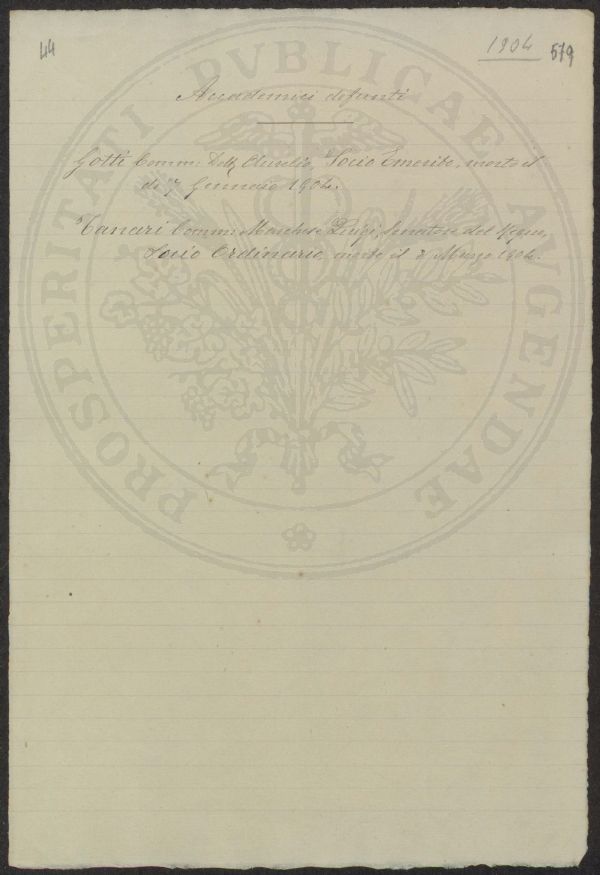 44
1904
579
PROSPERITATI PVBLICAE AVGENDAE
Accademici defunti
Gotti Comm. Dott. Aurelio, Socio Emerito, morto il
dì 7 Gennaio 1904.
Tanari Comm. Marchese Luigi, Senatore del Regno,
Socio Ordinario, morto il 3 Marzo 1904.